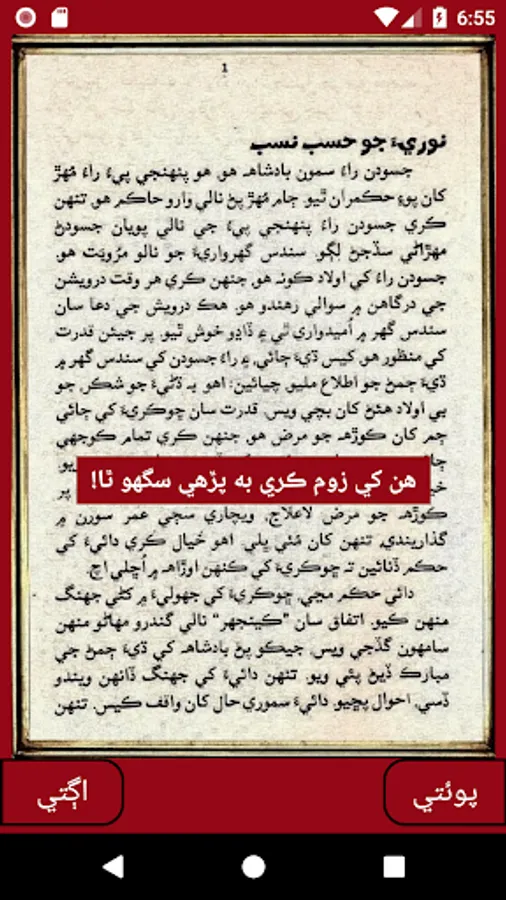 6:55
1
نوريءَ جو حسب نسب
جسودن راءَ سمون بادشاهہ هو. هو پنهنجي پيءُ راءَ مُهڙ
کان پوءِ حڪمران ٿيو. ڄام مُهڙ پڻ نالي وارو حاڪم هو. تنهن
ڪري جسودن راءَ پنهنجي پيءُ جي نالي پويان جسودڻ
مهڙاڻي سڏجڻ لڳو. سندس گهرواريءَ جو نالو مرُويَت هو.
جسودن راءَ کي اولاد ڪونہ هو، جنهن ڪري هر وقت درويشن
جي درگاهن ۾ سوالي رهندو هو. هڪ درويش جي دعا سان
سندس گهر ۾ اُميدواري ٿي ۽ ڏاڍو خوش ٿيو. پر جيئن قدرت
کي منظور هو، کيس ڌيءَ ڄائي. ۽ راءَ جسودن کي سندس گهر ۾
ڌيءَ ڄمڻ جو اطلاع مليو. چيائين: اهو بہ ڌڻيءَ جو شڪر، جو
بي اولاد هئڻ کان بچي ويس. قدرت سان ڇوڪريءَ کي ڄائي
ڄم کان ڪوڙهہ جو مرض هو. جنهن ڪري تمام ڪوجهي
هن کي زوم ڪري به پڙهي سگهو ٿا!
پر
ڪوڙهہ جو مرض لاعلاج، ويچاري سڄي عمر سورن ۾
گذاريندي، تنهن کان مُئي ڀلي. اهو خيال ڪري دائيءَ کي
حڪم ڏنائين تہ ڇوڪريءَ کي ڪنهن اوڙاهہ ۾ اُڇلي اچ.
دائي حڪم مڃي، ڇوڪريءَ کي جهوليءَ ۾ کڻي جهنگ
منهن ڪيو. اتفاق سان "ڪينجهر" نالي گندرو مهاڻو منهن
سامهون گڏجي ويس. جيڪو پڻ بادشاهہ کي ڌيءَ ڄمڻ جي
مبارڪ ڏيڻ پئي ويو. تنهن دائيءَ کي جهنگ ڏانهن ويندو
ڏسي، احوال پڇيو. دائيءَ سموري حال کان واقف ڪيس. تنهن
اڳتي
پوئتي